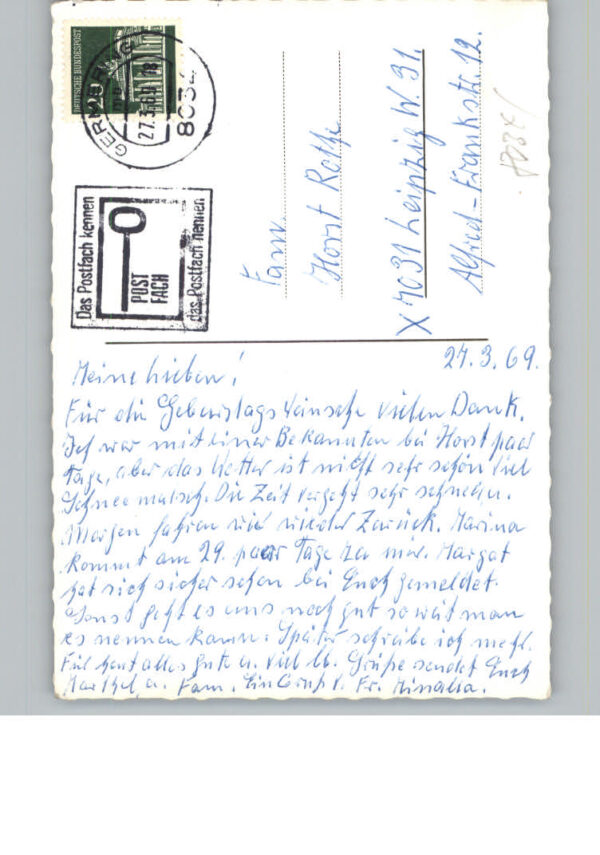 DEUTSCHE BUNDESPOST
GERMERING
27.3.69
8034
Das Postfach kennen
POST
FACH
das Postfach nennen
Fam.
Horst Rothe
X 7031 Leipzig W. 31.
Alfred-Frankstr. 12.
27.3.69.
Meine Lieben!
Für die Geburtstags Wünsche vielen Dank.
Ich war mit einer Bekannten bei Horst paar
Tage, aber das Wetter ist nicht sehr schön viel
Schneematsch. Die Zeit vergeht sehr schnell.
Morgen fahren wir wieder Zurück. Marina
kommt am 29. paar Tage zu mir. Margot
hat sich sicher schon bei Euch gemeldet.
Sonst geht es uns noch gut so weit man
es nennen kann. Später schreibe ich mehr.
Für heut alles gute u. viel lb. Grüße sendet Euch
u. Fam. Fr.